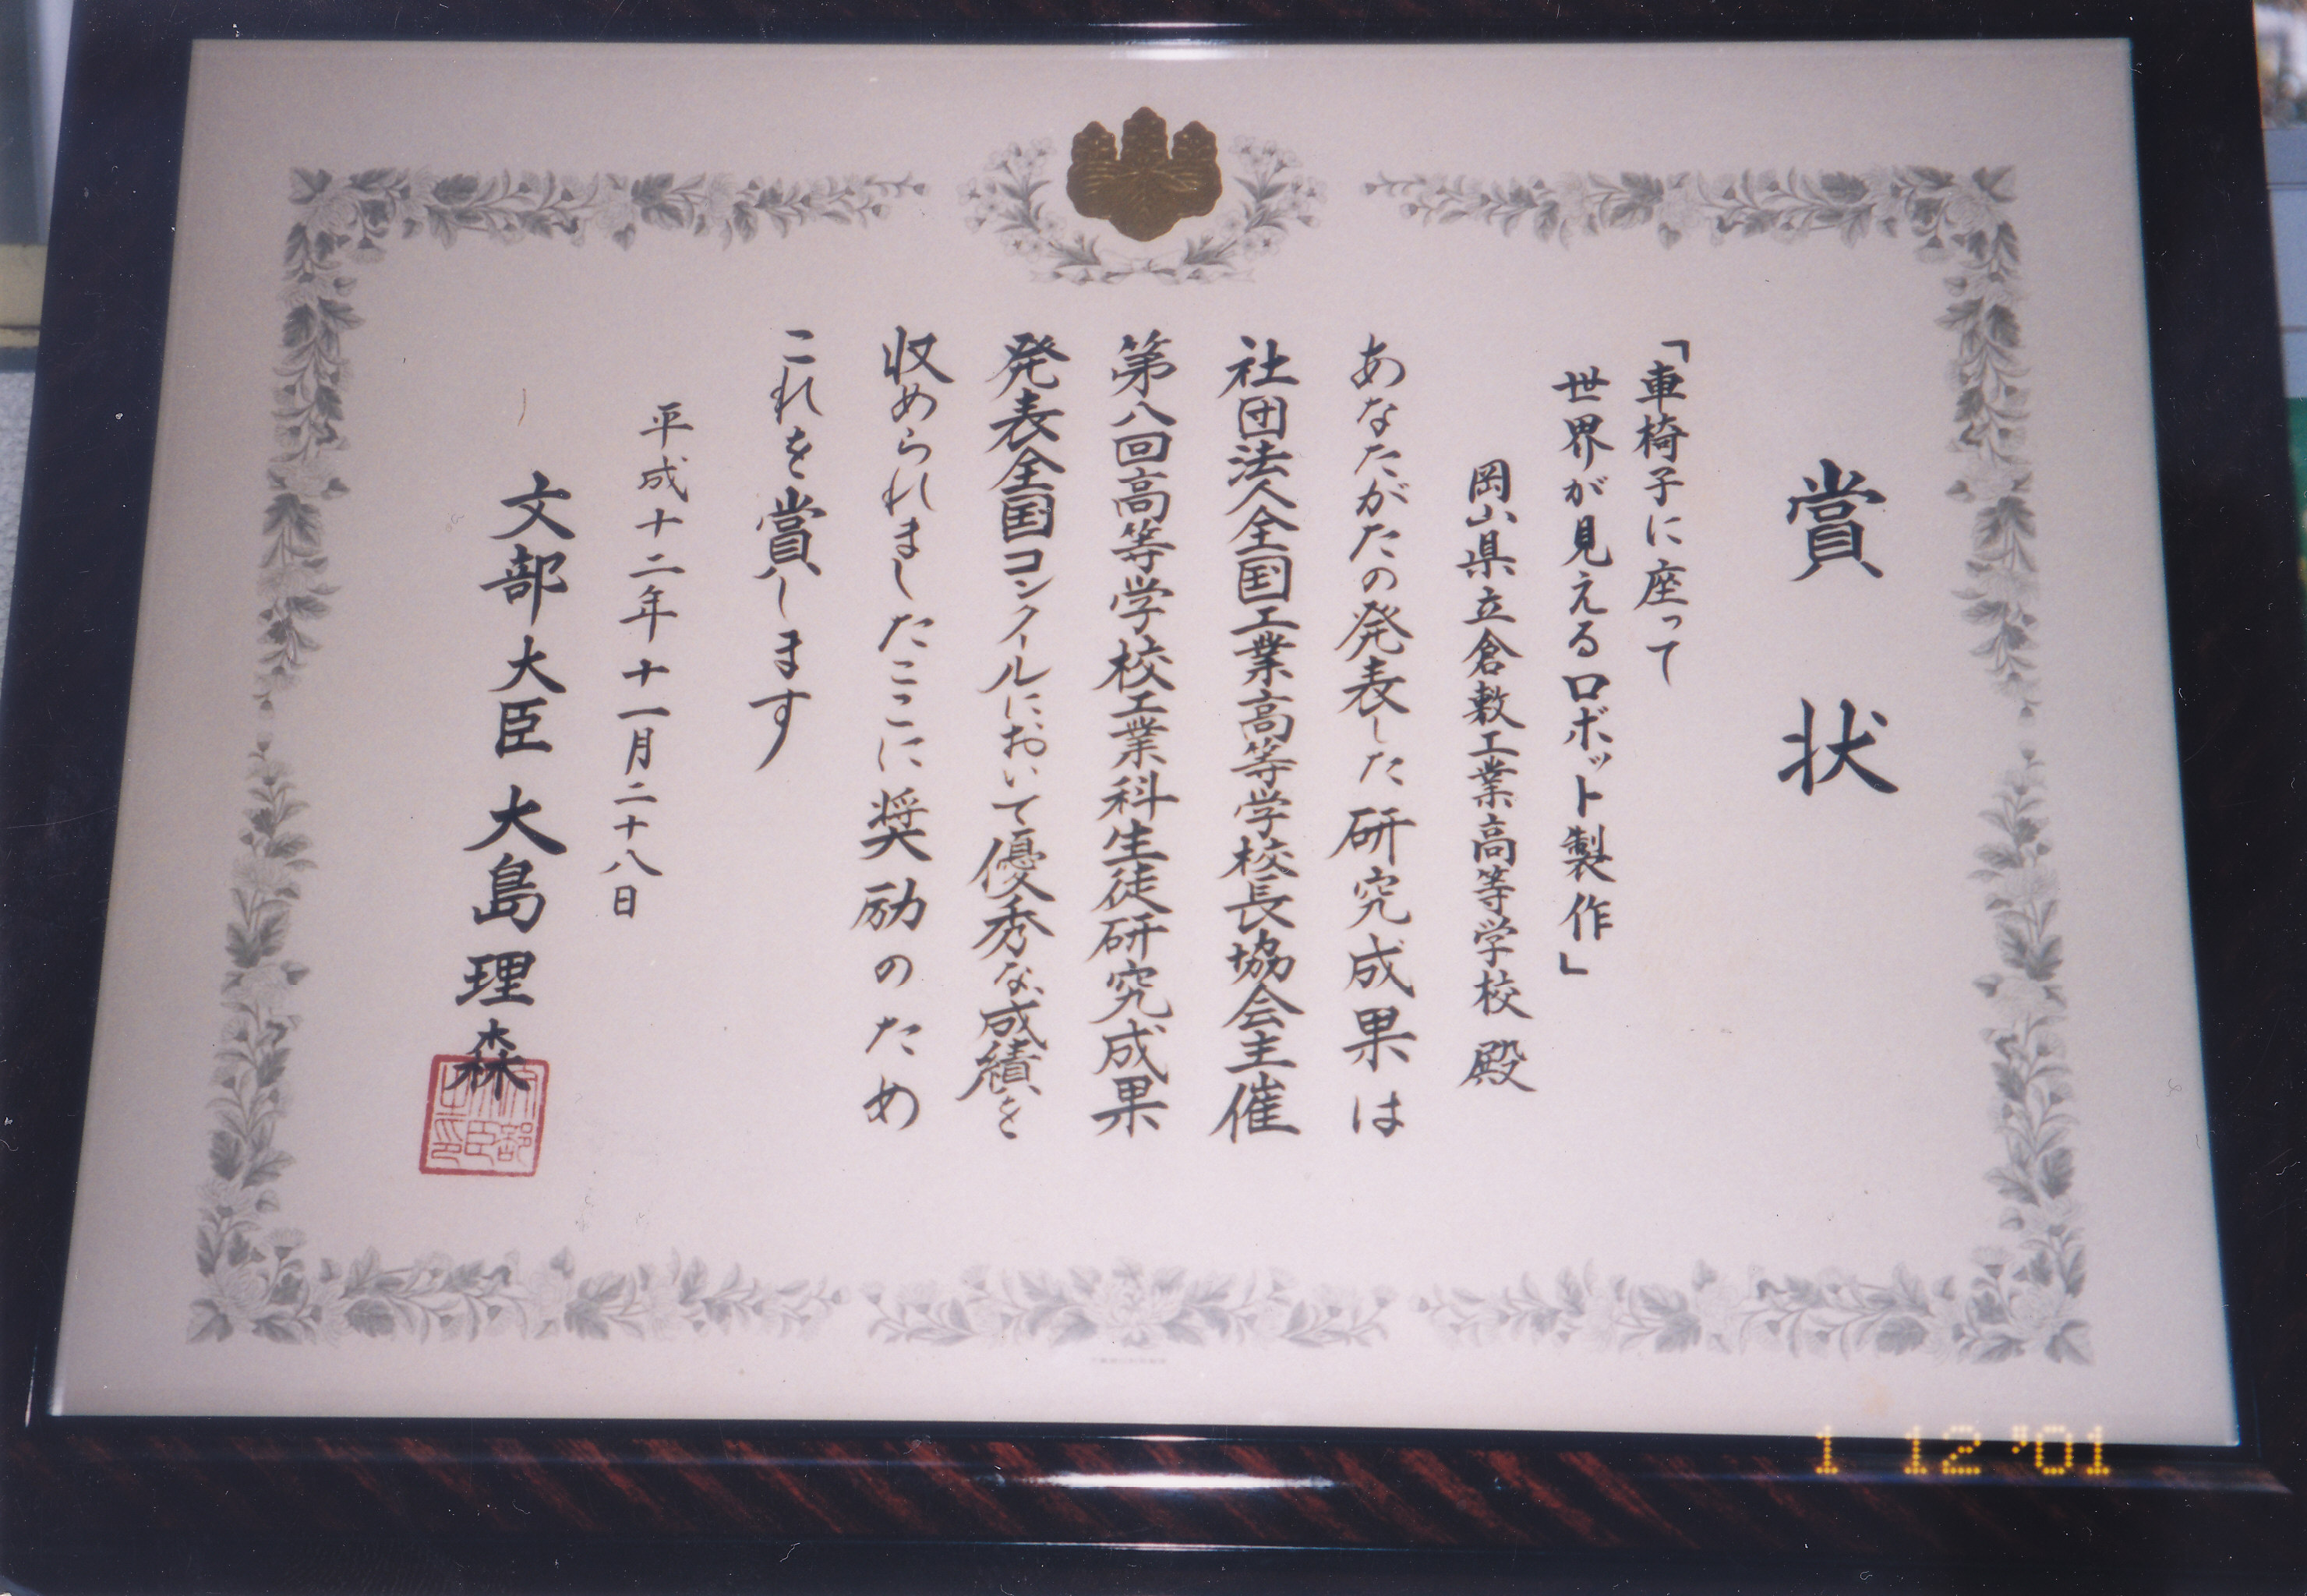 賞状
「車椅子に座って
世界が見えるロボット製作」
岡山県立倉敷工業高等学校 殿
あなたがたの発表した研究成果は
社団法人全国工業高等学校長協会主催
第八回高等学校工業科生徒研究成果
発表全国コンクールにおいて優秀な成績を
収められましたここに奨励のため
これを賞します
平成十二年十一月二十八日
文部大臣 大島理森
1 12 '01